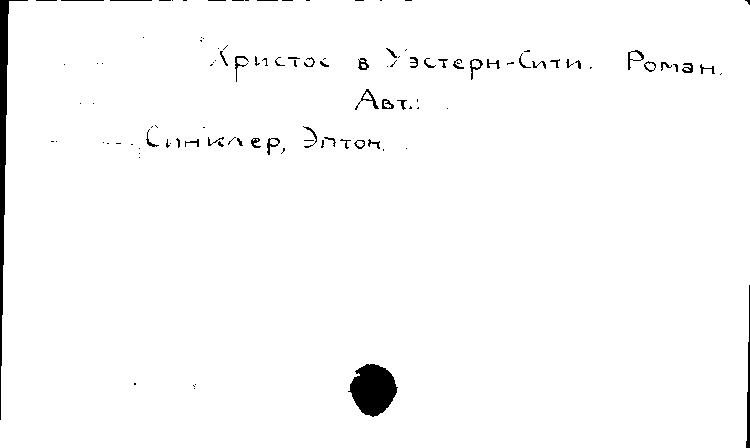 Христос в Уэстерн-Сити. Роман.
Авт.:
Синклер, Эптон.